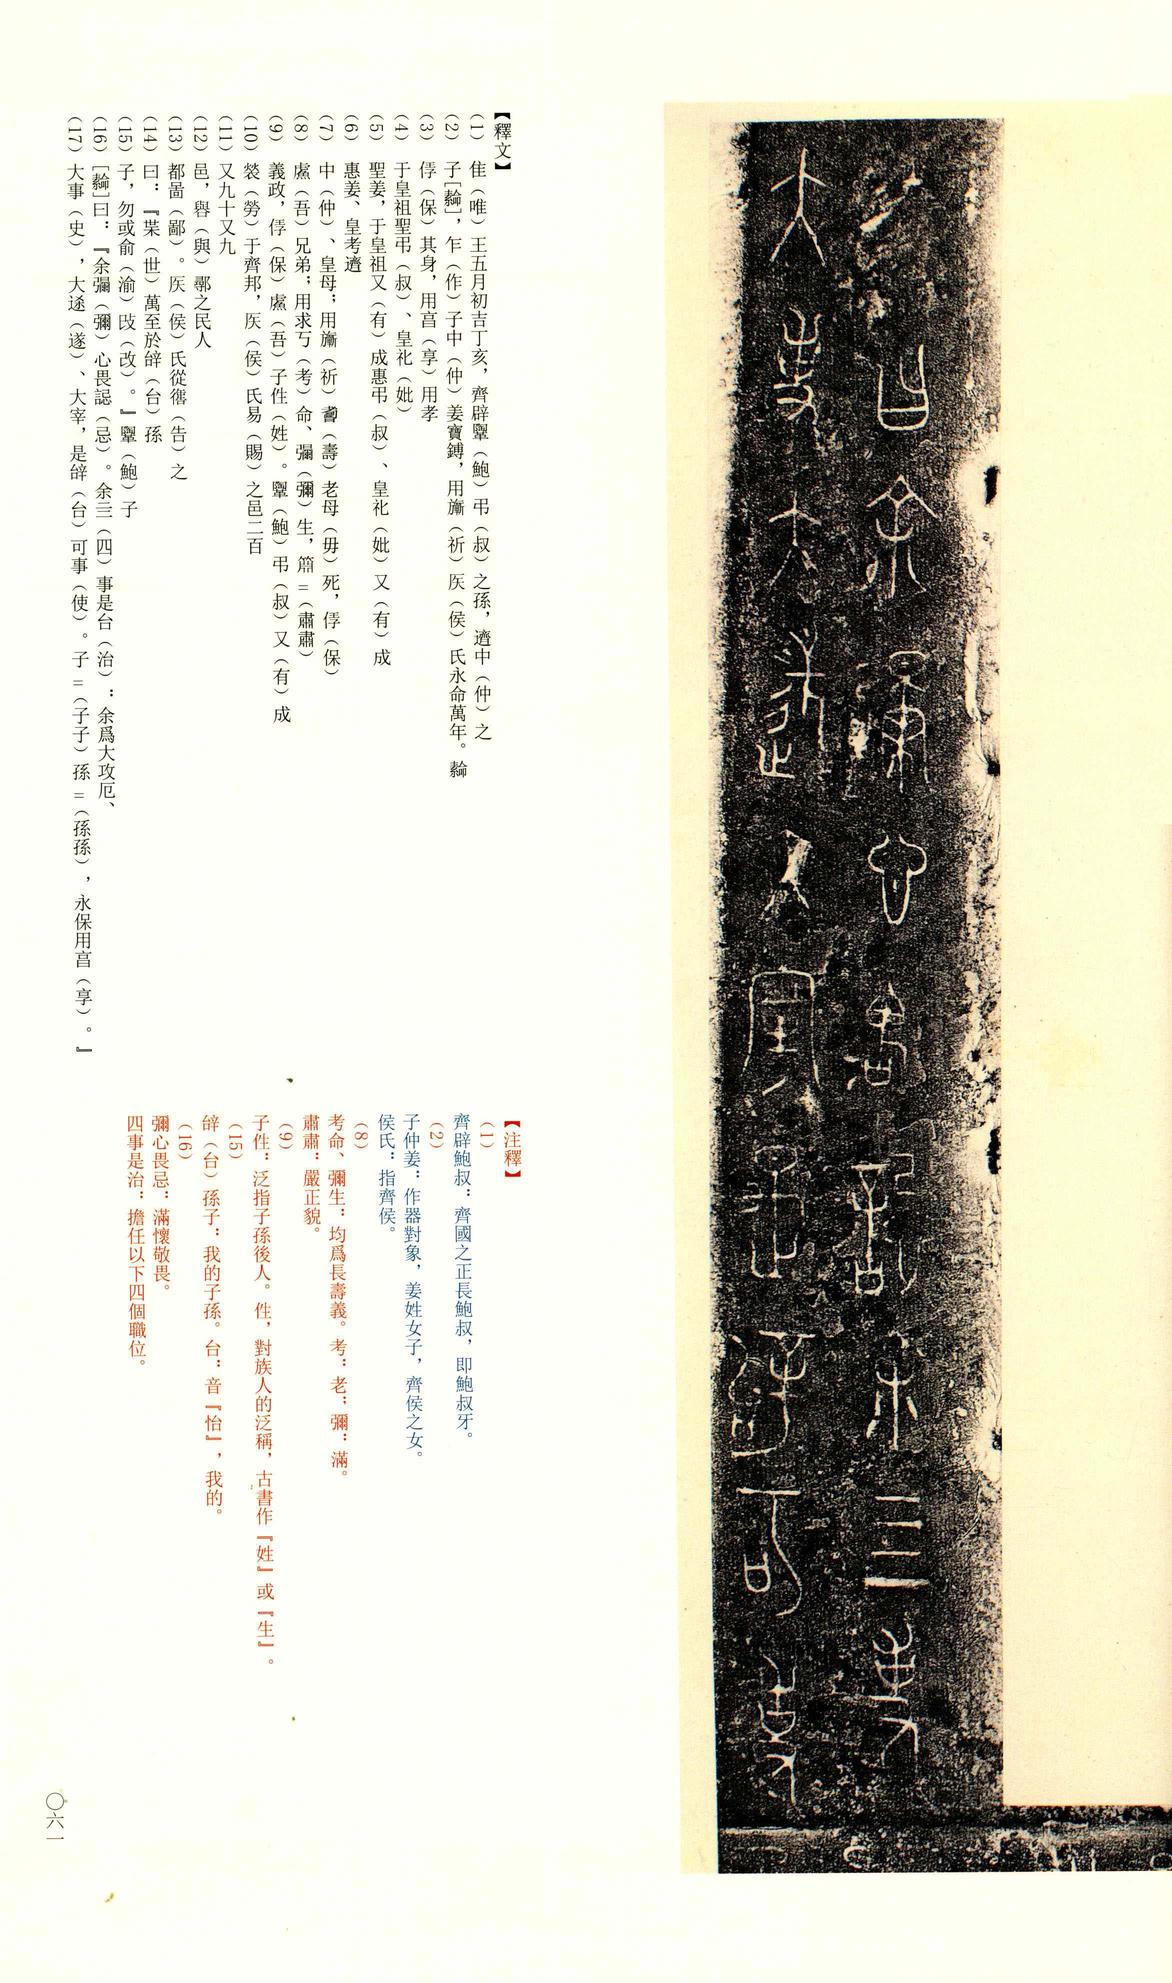 【釋文】
(1) 隹(唯)王五月初吉丁亥，齊辟鞷(鮑)弔(叔)之孫，遼中(仲)之
(2) 子[䋣]，乍(作)子中(仲)姜寶鎛，用旂(祈)医(侯)氏永命萬年。䋣
(3) 俘(保)其身，用亯(享)用孝
(4) 于皇祖聖弔(叔)、皇𥘆(妣)
(5) 聖姜，于皇祖又(有)成惠弔(叔)、皇𥘆(妣)又(有)成
(6) 惠姜、皇考
(7) 中(仲)、皇母；用旂(祈)(壽)老母(毋)死，俘(保)
(8) 䖒(吾)兄弟；用求丂(考)命、彌(彌)生，=(肅肅)
(9) 義政，俘(保)䖒(吾)子性(姓)。(鮑)弔(叔)又(有)成
(10) (勞)于齊邦，(侯)氏易(賜)之邑二百
(11) 又九十又九
(12) 邑，(與)鄩之民人
(13) 都啚(鄙)。(侯)氏從(告)之
(14) 曰：『枼(世)萬至於辝(台)孫
(15) 子，勿或俞(渝)攺(改)。』(鮑)子
(16) []曰：『余彌(彌)心畏誋(忌)。余亖(四)事是台(治)：余爲大攻厄、
(17) 大事(史)，大(遂)、大宰，是辝(台)可事(使)。子=(子子)孫=(孫孫)，永保用亯(享)。』
【注釋】
(1)
齊辟鮑叔：齊國之正長鮑叔，即鮑叔牙。
(2)
子仲姜：作器對象，姜姓女子，齊侯之女。
侯氏：指齊侯。
(8)
考命、彌生：均爲長壽義。考：老；彌：滿。
肅肅：嚴正貌。
(9)
子性：泛指子孫後人。性，對族人的泛稱，古書作『姓』或『生』。
(15)
辝(台)孫子：我的子孫。台：音『怡』，我的。
(16)
彌心畏忌：滿懷敬畏。
四事是治：擔任以下四個職位。
〇六一